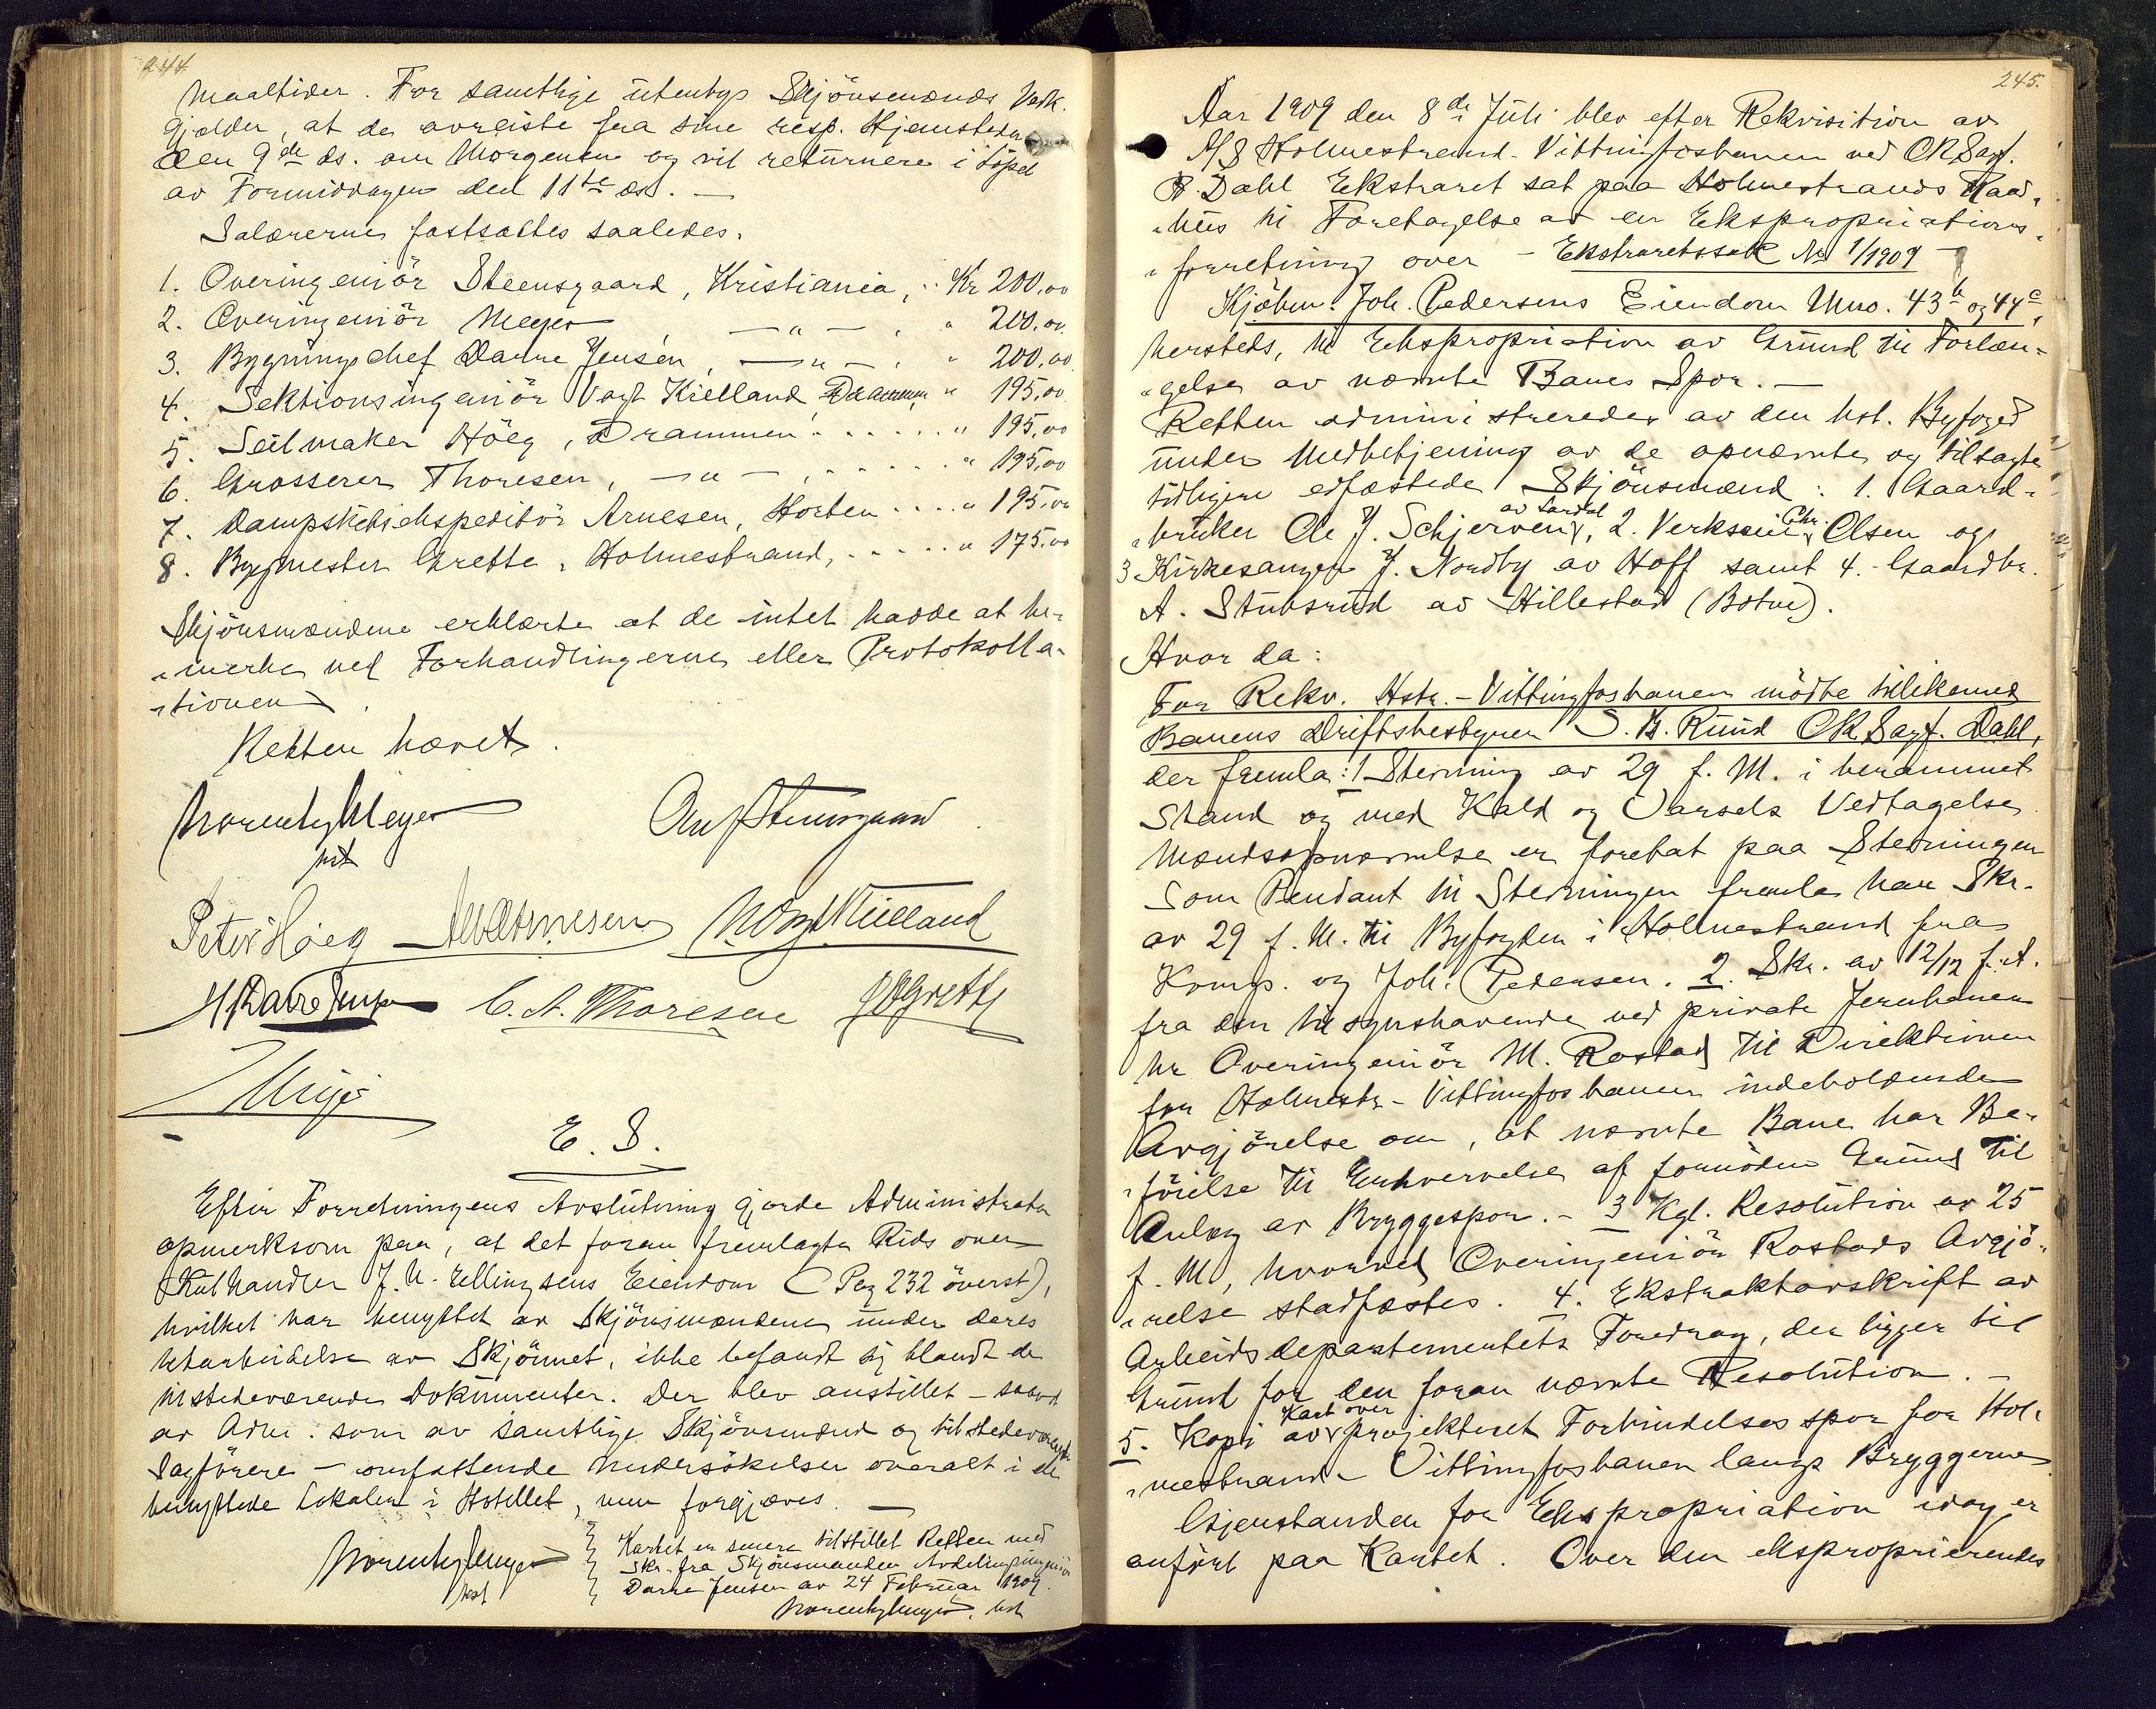 244
Maaltider. For samtlige utenbys Skjönsmænds Vedk.
gjælder, at de avreiste fra sine resp. Hjemsteder
den 9de ds. om Morgenen og vil returnere i Löpet
av Formiddagen den 11te ds. —
Salærerne fastsattes saaledes.
1. Overingeniör Steensgaard, Kristiania, Kr 200,00
2. Overingeniör Meyer — " — " 200,00
3. Bygningschef Darre Jensen, — " — " 200,00
4. Sektionsingeniör Vogt Kielland, Drammen " 195,00
5. Seilmaker Höeg, Drammen " 195,00
6. Grosserer Thoresen, — " — " 195,00
7. Dampskibsekspeditör Arnesen, Horten " 195,00
8. Bygmester Grette, Holmestrand, " 175,00
Skjönsmændene erklærte at de intet hadde at be-
merke ved Forhandlingerne eller Protokolla-
tionen.
Retten hævet.
Meyer
cst
Peter Höeg Arnesen Vogt Kielland
Darre Jensen C. A. Thoresen Grette
E. S.
Efter Forretningens Avslutning gjorde Administrator
opmerksom paa, at det foran fremlagte Rids over
Kulhandler J. N. Ellingsens Eiendom (Pag 232 överst),
hvilket var benyttet av Skjönsmændene under deres
Utarbeidelse av Skjönnet, ikke befandt sig blandt de
tilstedeværende Dokumenter. Der blev anstillet – saavel
av Adm: som av samtlige Skjönsmænd og tilstedeværende
Sagförere – omfattende Undersökelser overalt i de
benyttede Lokaler i Hotellet, men forgjæves. —
Kartet er senere tilstillet Retten med
Skr. fra Skjönsmanden Avdelingsingeniör
Darre Jensen av 24 Februar 1909.
245.
Aar 1909 den 8de Juli blev efter Rekvisition av
A/S Holmestrand-Vittingfosbanen ved ORSagf.
Dahl Ekstraret sat paa Holmestrands Raad-
hus til Foretagelse av en Ekspropriations-
forretning over – Ekstraretssak No 1/1909 –
Kjöbm. Joh. Pedersens Eiendom Mno. 43b og 44c,
hersteds, til Ekspropriation av Grund til Forlæn-
gelse av nævnte Banes Spor. —
Retten administreredes av den kst. Byfoged
under Medbetjening av de opnævnte og tilsagte
tidligere edfæstede Skjönsmænd: 1. Gaard-
bruker Ole J. Schjerven av Sandal, 2. Verkseier Chr. Olsen og
3 Kirkesanger J. Nordby av Hoff samt 4. Gaardbr.
A. Stubsrud av Hillestad (Botne).
Hvor da:
For Rekv. Hstr.-Vittingfosbanen mödte tillikemed
Banens Driftsbestyrer S. B. Rund ORSagf. Dahl,
der fremla: 1 Stevning av 29 f. M. i berammet
Stand og med Kald og Varsels Vedtagelse
Mændsopnævnelse er foretat paa Stevningen
Som Pendant til Stevningen fremla han Skr.
av 29 f. M. til Byfogden i Holmestrand fra
Komp. og Joh. Pedersen. 2. Skr. av 12/12 f. A.
fra den tilsynshavende ved private Jernbaner
hr Overingeniör M. Rostad til Direktionen
for Holmestr.-Vittingfosbanen indeholdende
Avgjörelse om, at nævnte Bane har Be-
föielse til Erhvervelse af fornöden Grund til
Anlæg av Bryggespor. – 3 Kgl. Resolution av 25
f. M, hvorved Overingeniör Rostads Avgjö-
relse stadfæstes. 4. Ekstraktavskrift av
Arbeidsdepartementets Foredrag, der ligger til
Grund for den foran nævnte Resolution. –
5. Kopi av Kart over projekteret Forbindelsesspor for Hol-
mestrand-Vittingfosbanen langs Bryggerne
Gjenstanden for Ekspropriation idag er
anfört paa Kartet. Over den eksproprierendes